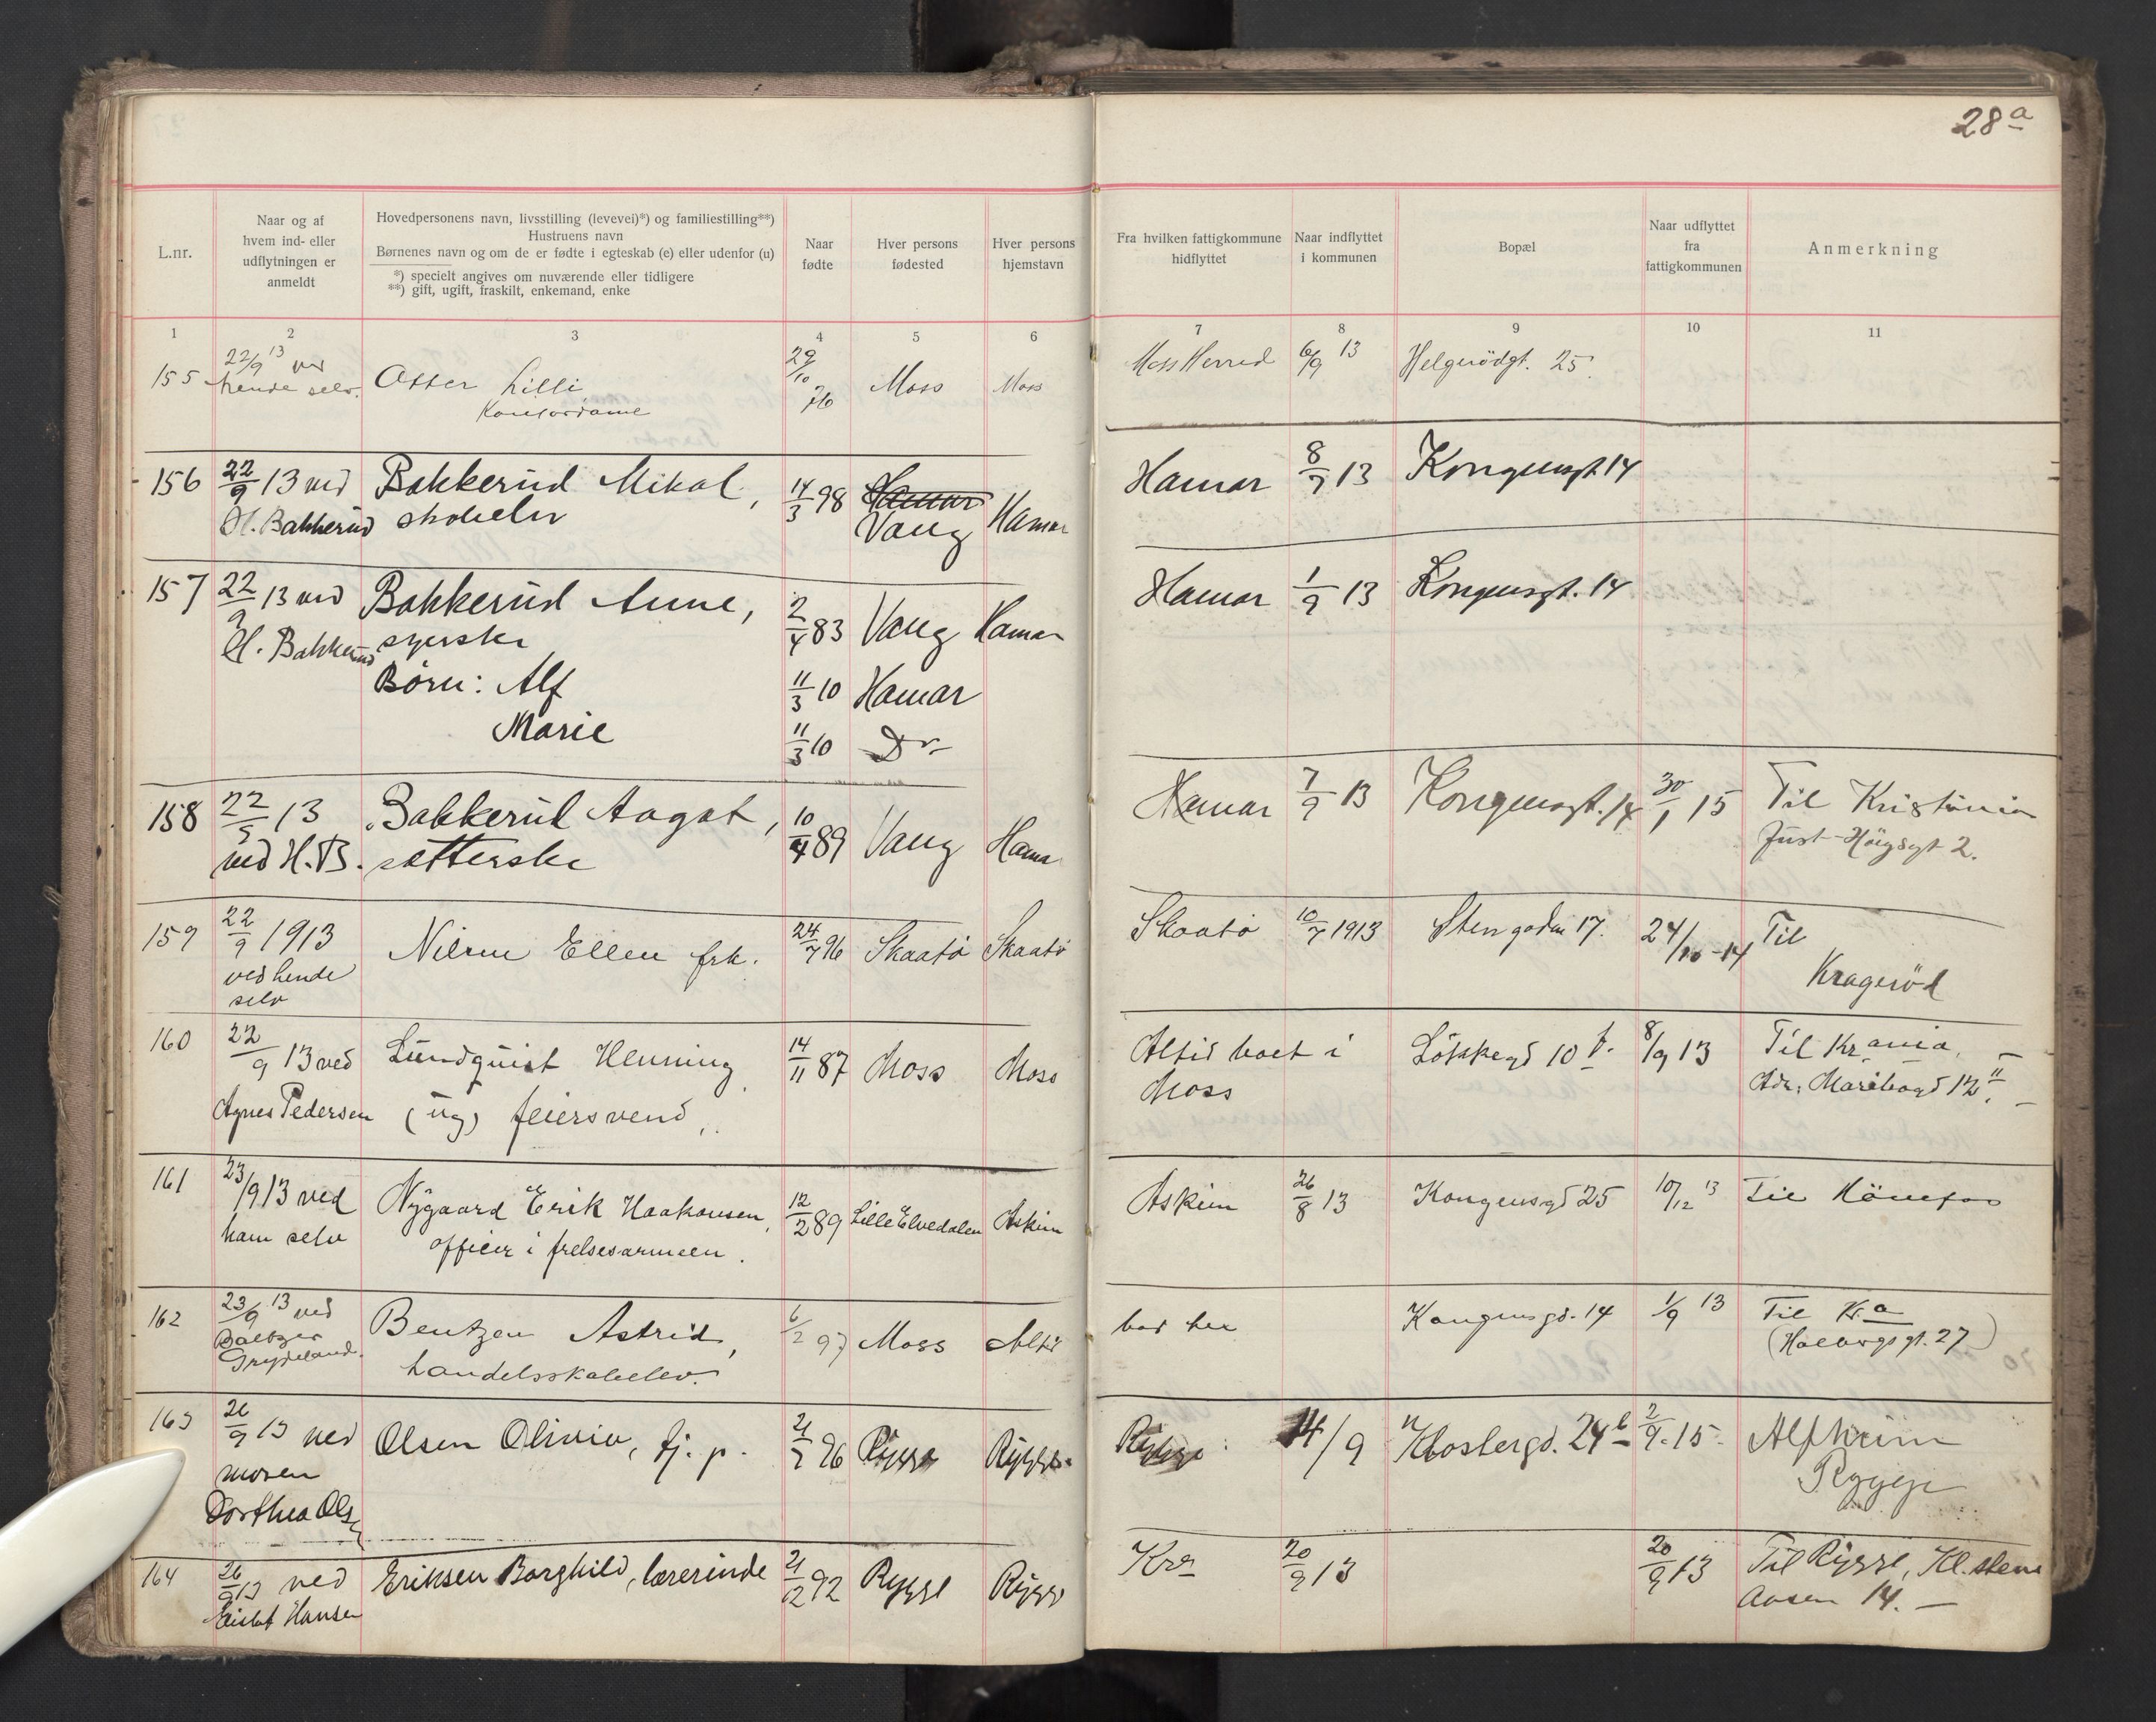 28 a
L.nr.
Naar og af
hvem ind- eller
udflytningen er
anmeldt
Hovedpersonens navn, livsstilling (levevei)*) og familiestilling**)
Hustruens navn
Børnenes navn og om de er fødte i egteskab (e) eller udenfor (u)
*) specielt angives om nuværende eller tidligere
**) gift, ugift, fraskilt, enkemand, enke
Naar
fødte
Hver persons
fødested
Hver persons
hjemstavn
Fra hvilken fattigkommune
hidflyttet
Naar indflyttet
i kommunen
Bopæl
Naar udflyttet
fra
fattigkommunen
Anmerkning
1 2 3 4 5 6 7 8 9 10 11
155 22/9 13 ved Lilli 29/10 Moss Moss Moss Herred 6/9 13 Helgerödgt. 25
hende selv.
Kontordame
156 22/9 13 ved Bakkerud Mikal, 14/3 98 Hamar Hamar Hamar 8/7 13 Kongensgt. 14
H. Bakkerud skoleelev Vang
157 22/9 13 ved Bakkerud Anne, 2/4 83 Vang Hamar Hamar 1/9 13 Kongensgt. 14
H. Bakkerud syerske
Børn: Alf 11/3 10 Hamar
Marie 11/3 10 Do
158 22/9 13 Bakkerud Aagot, 10/4 89 Vang Hamar Hamar 7/9 13 Kongensgt. 14 30/1 15 Til Kristiania
ved H. B. sætterske Just Høygsgt 2.
159 22/9 1913 Nilsen Ellen frk. 24/7 96 Skaatø Skaatø Skaatø 10/7 1913 Stengaden 17. 24/10 -14 Til
ved hende
selv
Kragerød
160 22/9 13 ved Lundquist Henning 14/11 87 Moss Moss Altid boet i Løkkegd 10 b. 8/9 13 Til Kr.ania.
Agnes Pedersen (ug) feiersvend, Moss Adr: Maribogd 12 II.
161 23/9 13 ved Nygaard Erik Haakonsen, 12/2 89 Lille Elvedalen Askim Askim 26/8 13 Kongensgd 25 10/12 13 Til Hönefos
ham selv officer i frelsesarmeen.
162 23/9 13 ved Bentzen Astrid, 6/2 97 Moss Altid bod her Kongensgd. 14 1/9 13 Til Kr.a
Baltzer
Grydeland. handelsskoleelev. (Holbergsgt. 27)
163 26/9 13 ved Olsen Olivia, tj. p. 96 Rygge Rygge Rygge 14/9 Klostergd. 24 b 2/9. 15. Alfheim
moren Rygge
Dorthea Olsen
164 26/9 13 ved Eriksen Borghild, lærerinde 21/12 92 Rygge Rygge Kra 20/9 13 20/9 13 Til Rygge, Kl. stens
Hansen aasen 14.